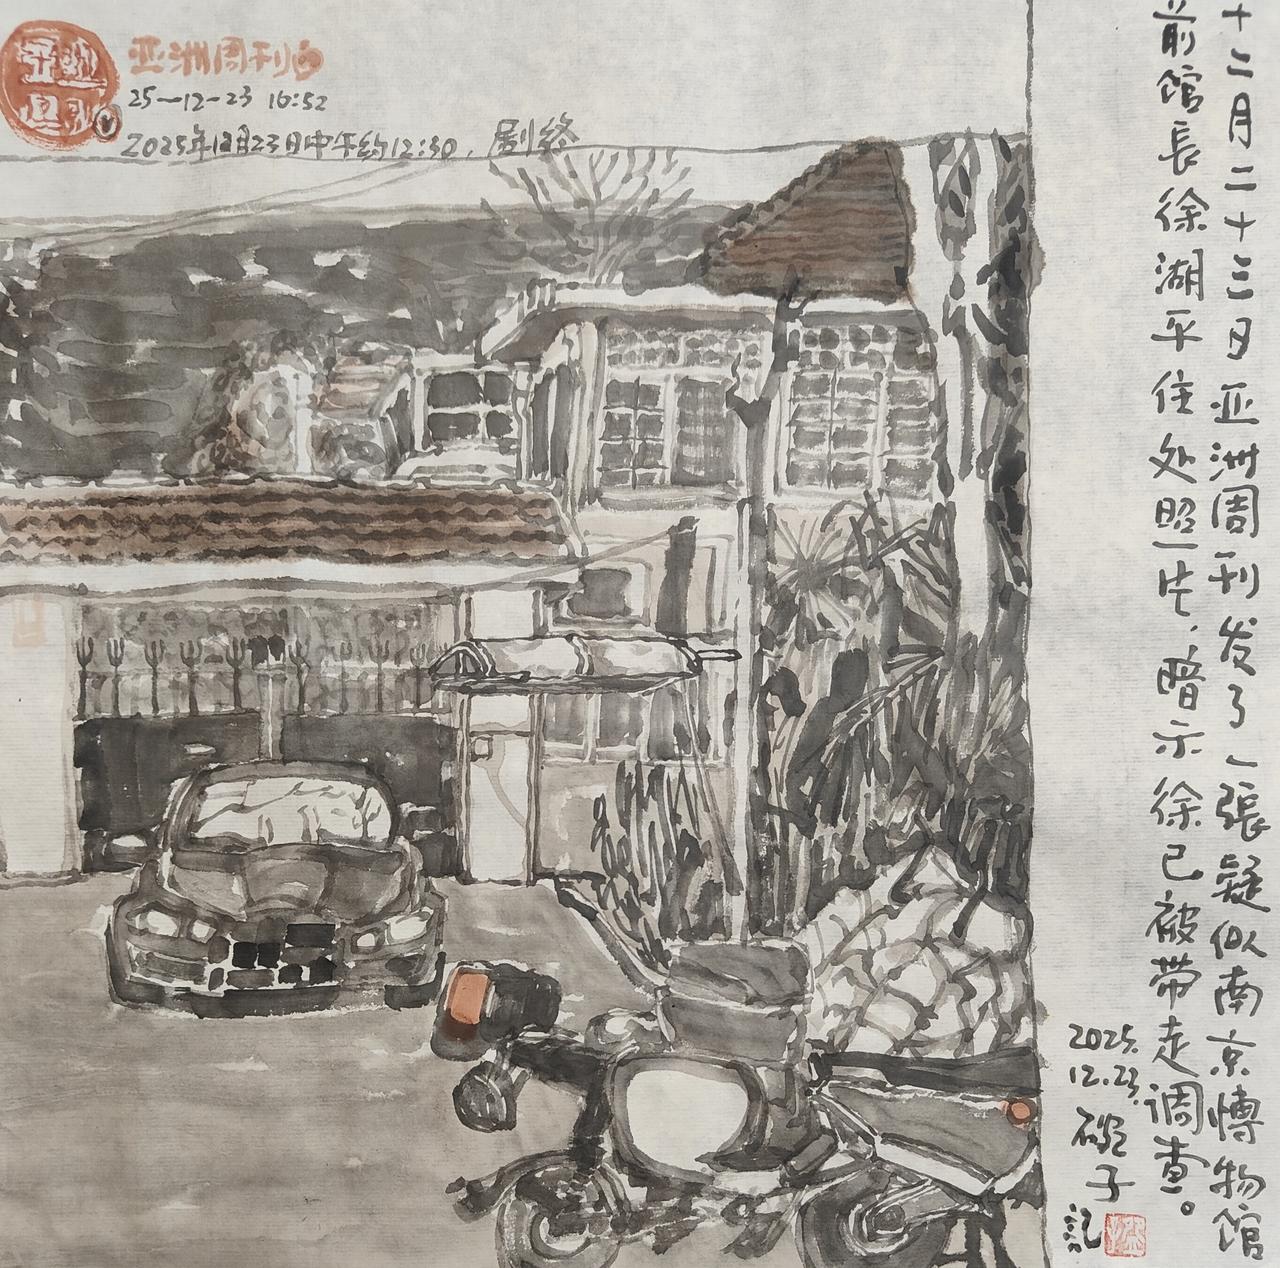 亚洲周刊
亚洲周刊
25-12-23 16:52
2025年12月23日中午约12:30，剧终
十二月二十三日亚洲周刊发了一張疑似南京博物馆
前馆長徐湖平住处照片，暗示徐已被带走调查。
2025.
12.23.
子
记